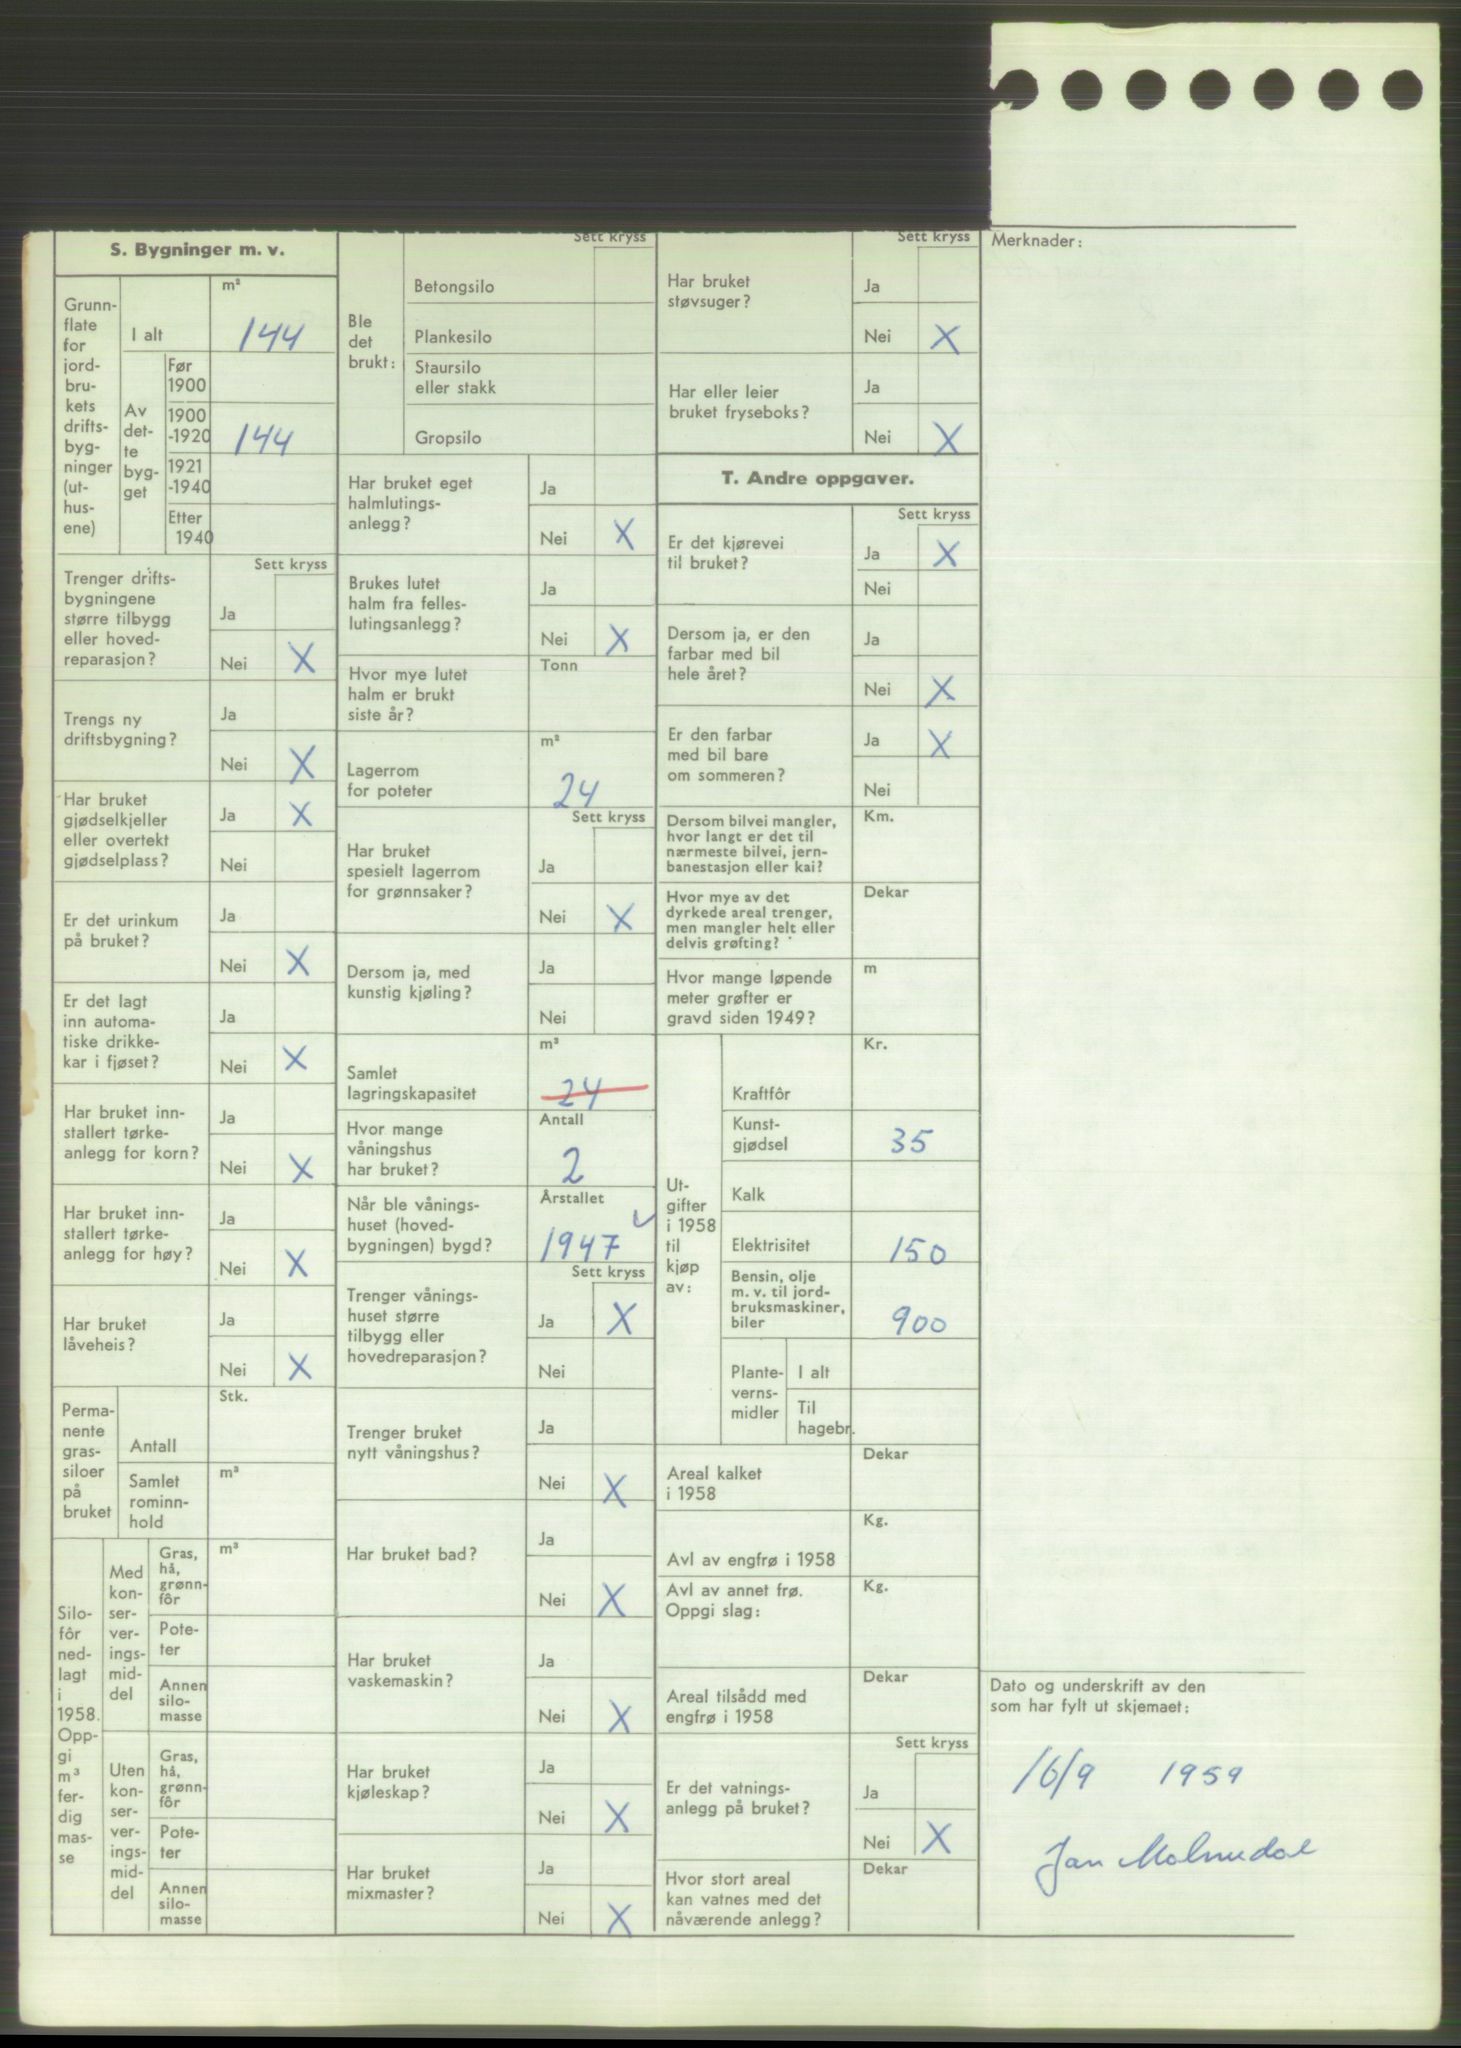 S. Bygninger m. v.
Grunn-
flate
for
jord-
bru-
kets
drifts-
byg-
ninger
(ut-
hus-
ene)
m²
I alt
144
Av
det-
te
byg-
get
Før
1900
1900
-1920
144
1921
-1940
Etter
1940
Sett kryss
Trenger drifts-
bygningene
større tilbygg
eller hoved-
reparasjon?
Ja
Nei X
Trengs ny
driftsbygning?
Ja
Nei X
Har bruket
gjødselkjeller
eller overtekt
gjødselplass?
Ja X
Nei
Er det urinkum
på bruket?
Ja
Nei X
Er det lagt
inn automa-
tiske drikke-
kar i fjøset?
Ja
Nei X
Har bruket inn-
stallert tørke-
anlegg for korn?
Ja
Nei X
Har bruket inn-
stallert tørke-
anlegg for høy?
Ja
Nei X
Har bruket
låveheis?
Ja
Nei X
Perma-
nente
gras-
siloer
på
bruket
Stk.
Antall
Samlet
rominn-
hold
m³
Silo-
fôr
ned-
lagt
i
1958.
Opp-
gi
m³
fer-
dig
mas-
se
Med
kon-
ser-
ver-
ings-
mid-
del
Gras,
hå,
grønn-
fôr
m³
Pote-
ter
Annen
silo-
masse
Uten
kon-
ser-
ver-
ings-
mid-
del
Gras,
hå,
grønn-
fôr
Pote-
ter
Annen
silo-
masse
Sett kryss
Ble
det
brukt:
Betongsilo
Plankesilo
Staursilo
eller stakk
Gropsilo
Har bruket eget
halmlutings-
anlegg?
Ja
Nei X
Brukes lutet
halm fra felles-
lutingsanlegg?
Ja
Nei X
Hvor mye lutet
halm er brukt
siste år?
Tonn
Lagerrom
for poteter
m²
24
Sett kryss
Har bruket
spesielt lagerrom
for grønnsaker?
Ja
Nei X
Dersom ja, med
kunstig kjøling?
Ja
Nei
Samlet
lagringskapasitet
m³
24
Hvor mange
våningshus
har bruket?
Antall
2
Når ble vånings-
huset (hoved-
bygningen) bygd?
Årstallet
1947
Sett kryss
Trenger vånings-
huset større
tilbygg eller
hovedreparasjon?
Ja X
Nei
Trenger bruket
nytt våningshus?
Ja
Nei X
Har bruket bad?
Ja
Nei X
Har bruket
vaskemaskin?
Ja
Nei X
Har bruket
kjøleskap?
Ja
Nei X
Har bruket
mixmaster?
Ja
Nei X
Sett kryss
Har bruket
støvsuger?
Ja
Nei X
Har eller leier
bruket fryseboks?
Ja
Nei X
T. Andre oppgaver.
Sett kryss
Er det kjørevei
til bruket?
Ja X
Nei
Dersom ja, er den
farbar med bil
hele året?
Ja
Nei X
Er den farbar
med bil bare
om sommeren?
Ja X
Nei
Dersom bilvei mangler,
hvor langt er det til
nærmeste bilvei, jern-
banestasjon eller kai?
Km.
Hvor mye av det
dyrkede areal trenger,
men mangler helt eller
delvis grøfting?
Dekar
Hvor mange løpende
meter grøfter er
gravd siden 1949?
m
Ut-
gifter
i 1958
til
kjøp
av:
Kr.
Kraftfôr
Kunst-
gjødsel
35
Kalk
Elektrisitet
150
Bensin, olje
m. v. til jord-
bruksmaskiner,
biler
900
Plante-
verns-
midler
I alt
Til
hagebr.
Areal kalket
i 1958
Dekar
Avl av engfrø i 1958
Kg.
Avl av annet frø.
Oppgi slag:
Kg.
Areal tilsådd med
engfrø i 1958
Dekar
Sett kryss
Er det vatnings-
anlegg på bruket?
Ja
Nei X
Hvor stort areal
kan vatnes med det
nåværende anlegg?
Dekar
Merknader:
Dato og underskrift av den
som har fylt ut skjemaet:
16/9 1959
Jan Malmedal